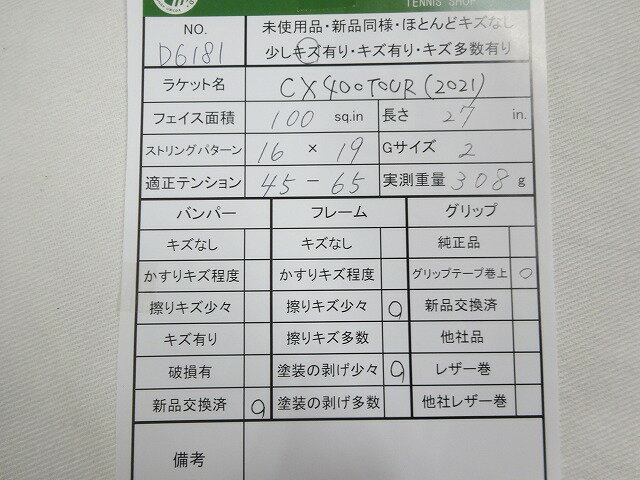 TENNIS SHOP
NO. 未使用品・新品同様・ほとんどキズなし
D6181 少しキズ有り・キズ有り・キズ多数有り
ラケット名 CX400TOUR(2021)
フェイス面積 100 sq.in 長さ 27 in.
ストリングパターン 16 × 19 Gサイズ 2
適正テンション 45-65 実測重量 308 g
バンパー フレーム グリップ
キズなし キズなし 純正品
かすりキズ程度 かすりキズ程度 グリップテープ巻上 ○
擦りキズ少々 擦りキズ少々 ○ 新品交換済
キズ有り 擦りキズ多数 他社品
破損有 塗装の剥げ少々 ○ レザー巻
新品交換済 ○ 塗装の剥げ多数 他社レザー巻
備考